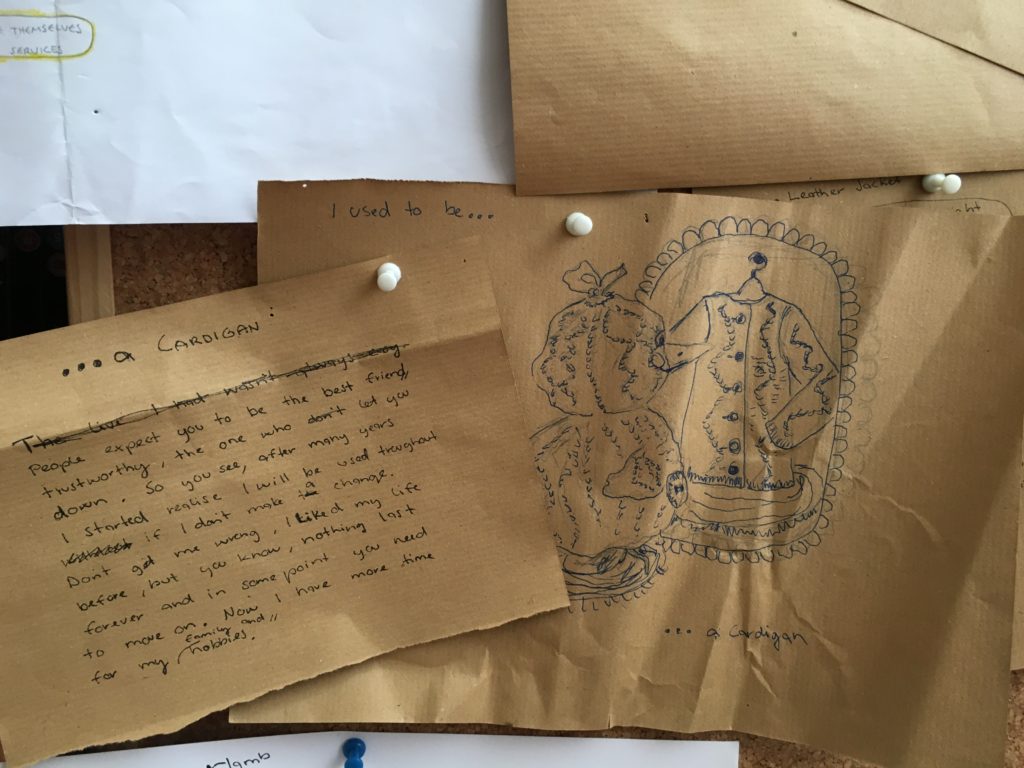 THEMSELVES
SERVICES
Leather Jacket
I used to be...
... a CARDIGAN:
The live I had wasn't always easy
People expect you to be the best friend,
trustworthy, the one who don't let you
down. So you see, after many years
I started realise I will be used troughout
if I don't make a change.
Don't get me wrong, I liked my life
before, but you know, nothing last
forever and in some point you need
to move on. Now I have more time
for my family and
hobbies.
... a Cardigan
lamb